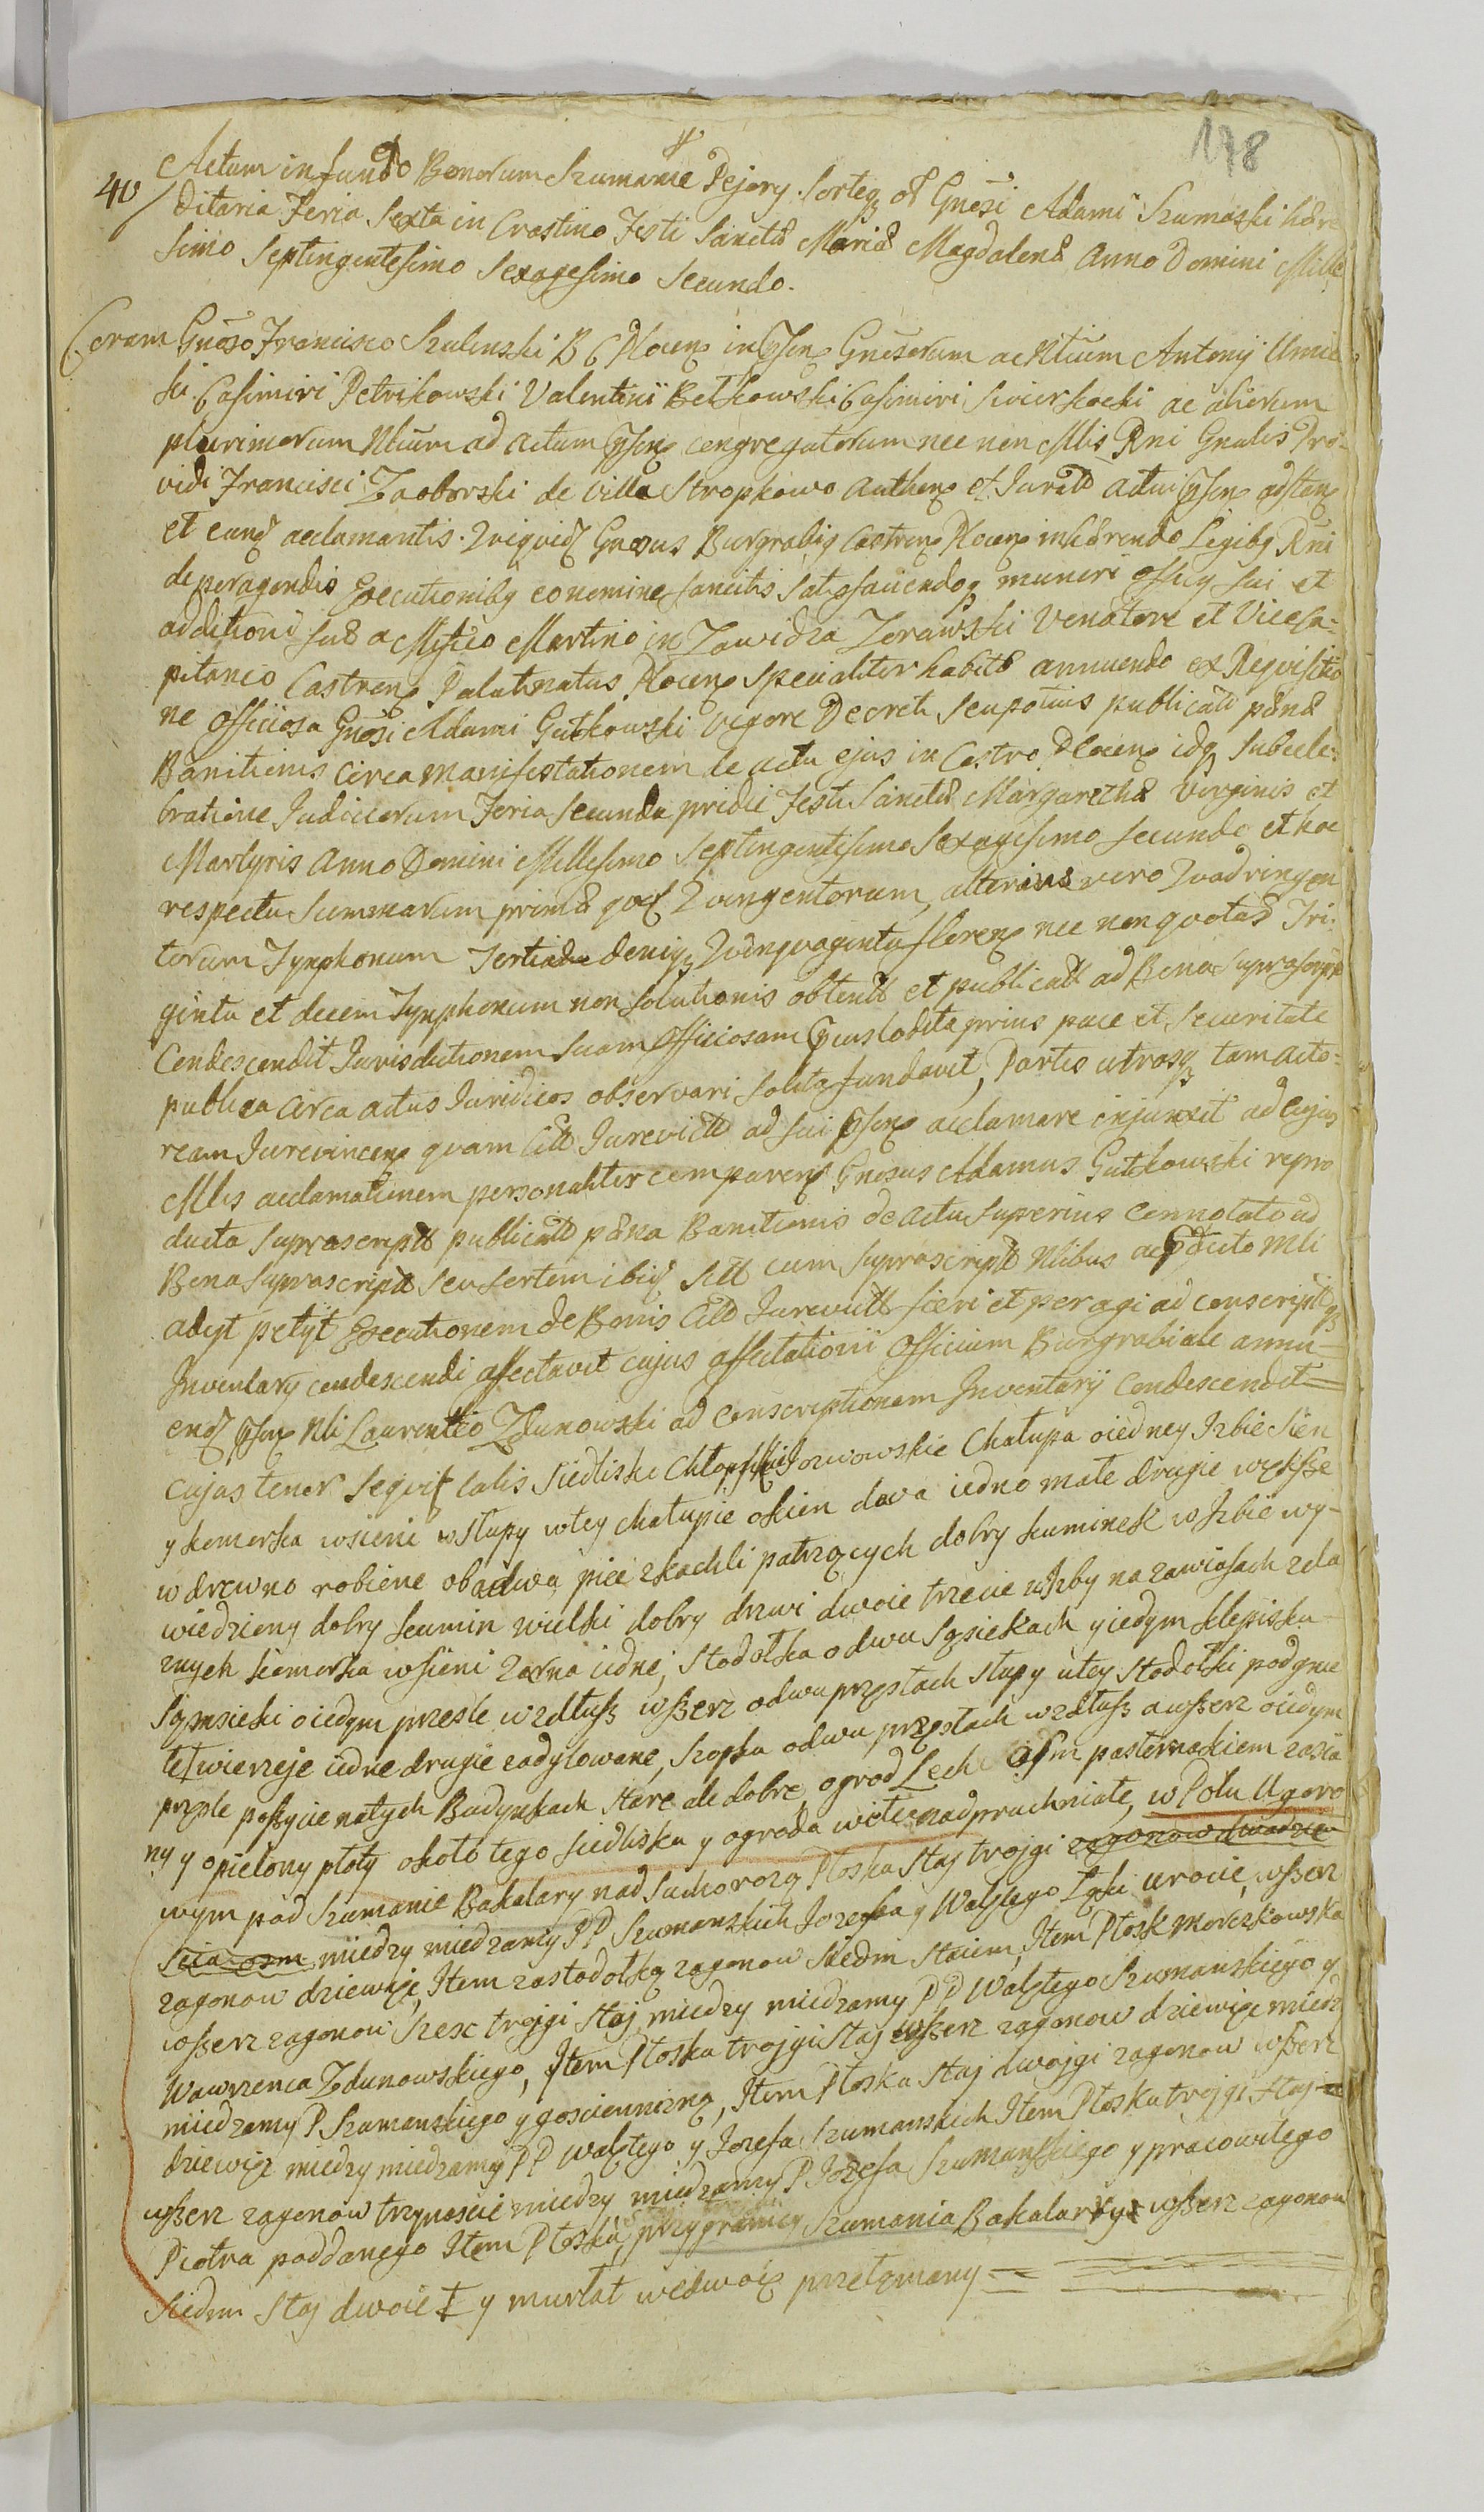 178
40
Actum in fundo Bonorum Szumanie Pejory Sorteq3 Gnosi Adami Szumaski hære
ditaria Feria Sexta in Crastino Festi Sanctæ Mariæ Magdalenæ Anno Domini Mille
simo Septingentesimo Sexagesimo Secundo.
Coram Gnoso Francisco Szulenski B C Plocen in Gnosorum ac Nlium Antonij Umie
ski Casimiri Petrikowski Valentinii Betkowski Casimiri ac aliorum
plurimorum Nlium ad actum congregatorum nec non Mlis Rni Gnalis Pro-
vidi Francisci Zaoborski de Villa Stropkowo Authen et Jurato actui adsten
et eund acclamantis. Quiquid Gnosus Burgrabiq Castren Plocen inhærendo Legibq Rni
de peragendis Executionibq eo nomine sancitis satisfaciendoq muneri officij sui et
additioni suæ a Mgfico Martino in Zawidza Zorawski Venatore et Viceca-
pitaneo Castren Palatinatus Plocen specialiter habitæ annuendo ex Requisitio
ne officiosa Gnosi Adami Gutkowski vigore Decreti seu potius publicati pænæ
Banitionis circa manifestationem de actu ejus in Castro Plocen idq sub cele-
bratione Judiciorum Feria Secunda pridie Festi Sanctæ Margarethæ Virginis et
Martyris Anno Domini Millesimo Septingentesimo Sexagesimo Secundo et hoc
respectu Summarum primæ Quingentorum, alterius vero Quadringen
torum Tynphonum Tertiæ deniq Quinquaginta floren nec non quotas Tri-
ginta et decem Tynphonum non solutionis obtent et publicat ad Bona suprascript
Condescendit Jurisdictionem suam officiosam custodita prius pace et securitate
publica circa actus Juridicos observari solita fundavit, Partes utrasq tam acto-
ream Jurevincen quam Cit Jurevict ad sui acclamare injunxit ad cujus
Mlis acclamationem personaliter comparens Gnosus Adamus Gutkowski repro
ducta suprascript publicat pæna Banitionis de actu superius connotato ad
Bona suprascript seu sortem ibid cum suprascript Nlibus ac dicto Mli
adijt petijt Executionem de Bonis Cit Jurevict fieri et peragi ad conscriptq
Inventarij condescendi affectavit cujus affectationi Officium Burgrabiale annu-
end Nli Laurentio Zdunowski ad conscriptionem Inventarij Condescendit=
cujas tenor sequit talis Siedlisko Chłopskie Chałupa oiedney Izbie Sien
y komorka wsieni wsłupy wtey chałupie okien dwa iedno małe drugie większe
w drewno robione obadwa piec zkachli patrzących dobry kominek w Izbie wy-
wiedziony dobry komin wielki dobry drzwi dwoie trzecie uIzby na zawiasach zela
znych komorka wsieni zarna iedne, stodołka odwu sąsiekach yiedym klepisku
sąmsieki oiedym przęsle wzdłusz wszerz odwu przęsłach słupy utey stodołki podgnie
te wierzeje iedne drugie zadylowane, szopka odwu przęsłach wzdłusz awszerz oiedym
przęsle poszycie natych Budynkach stare ale dobre ogrod Lechę pasternakiem zasia
ny y opielony płoty około tego siedliska y ogroda wcale nadpruchniałe, w Polu Ugoro
wym pod Szumanie Bakalary nad Suchorozą Płoska staj trojgi zagonow dwadzie
scia osm miedzy miedzamy PP Szumanskich Jozefa y Walętego Łąki urocie, wszerz
zagonow dziewięc, Item zastodołką zagonow siedm staiem, Item Płosk Morczkowska
wszerz zagonow szesc trojgi staj miedzy miedzamy PP Walętego Szumanskiego y
Wawrzenca Zdunowskiego, Item Płoska trojgi staj wszerz zagonow dziewięc miedz
miedzamy P Szumanskiego y goscienniczną, Item Płoska staj dwojgi zagonow wszerz
dziewięc miedzy miedzamy PP Walętego y Jozefa Szumanskich Item Płoska trojgi staj
wszerz zagonow trzynascie miedzy miedzamy P Jozefa Szumanskiego y pracowitego
Piotra poddanego Item Płoska przygranicy Szumania Bakalary wszerz zagonow
siedm staj dwoie y murlat wedwoie przełomany